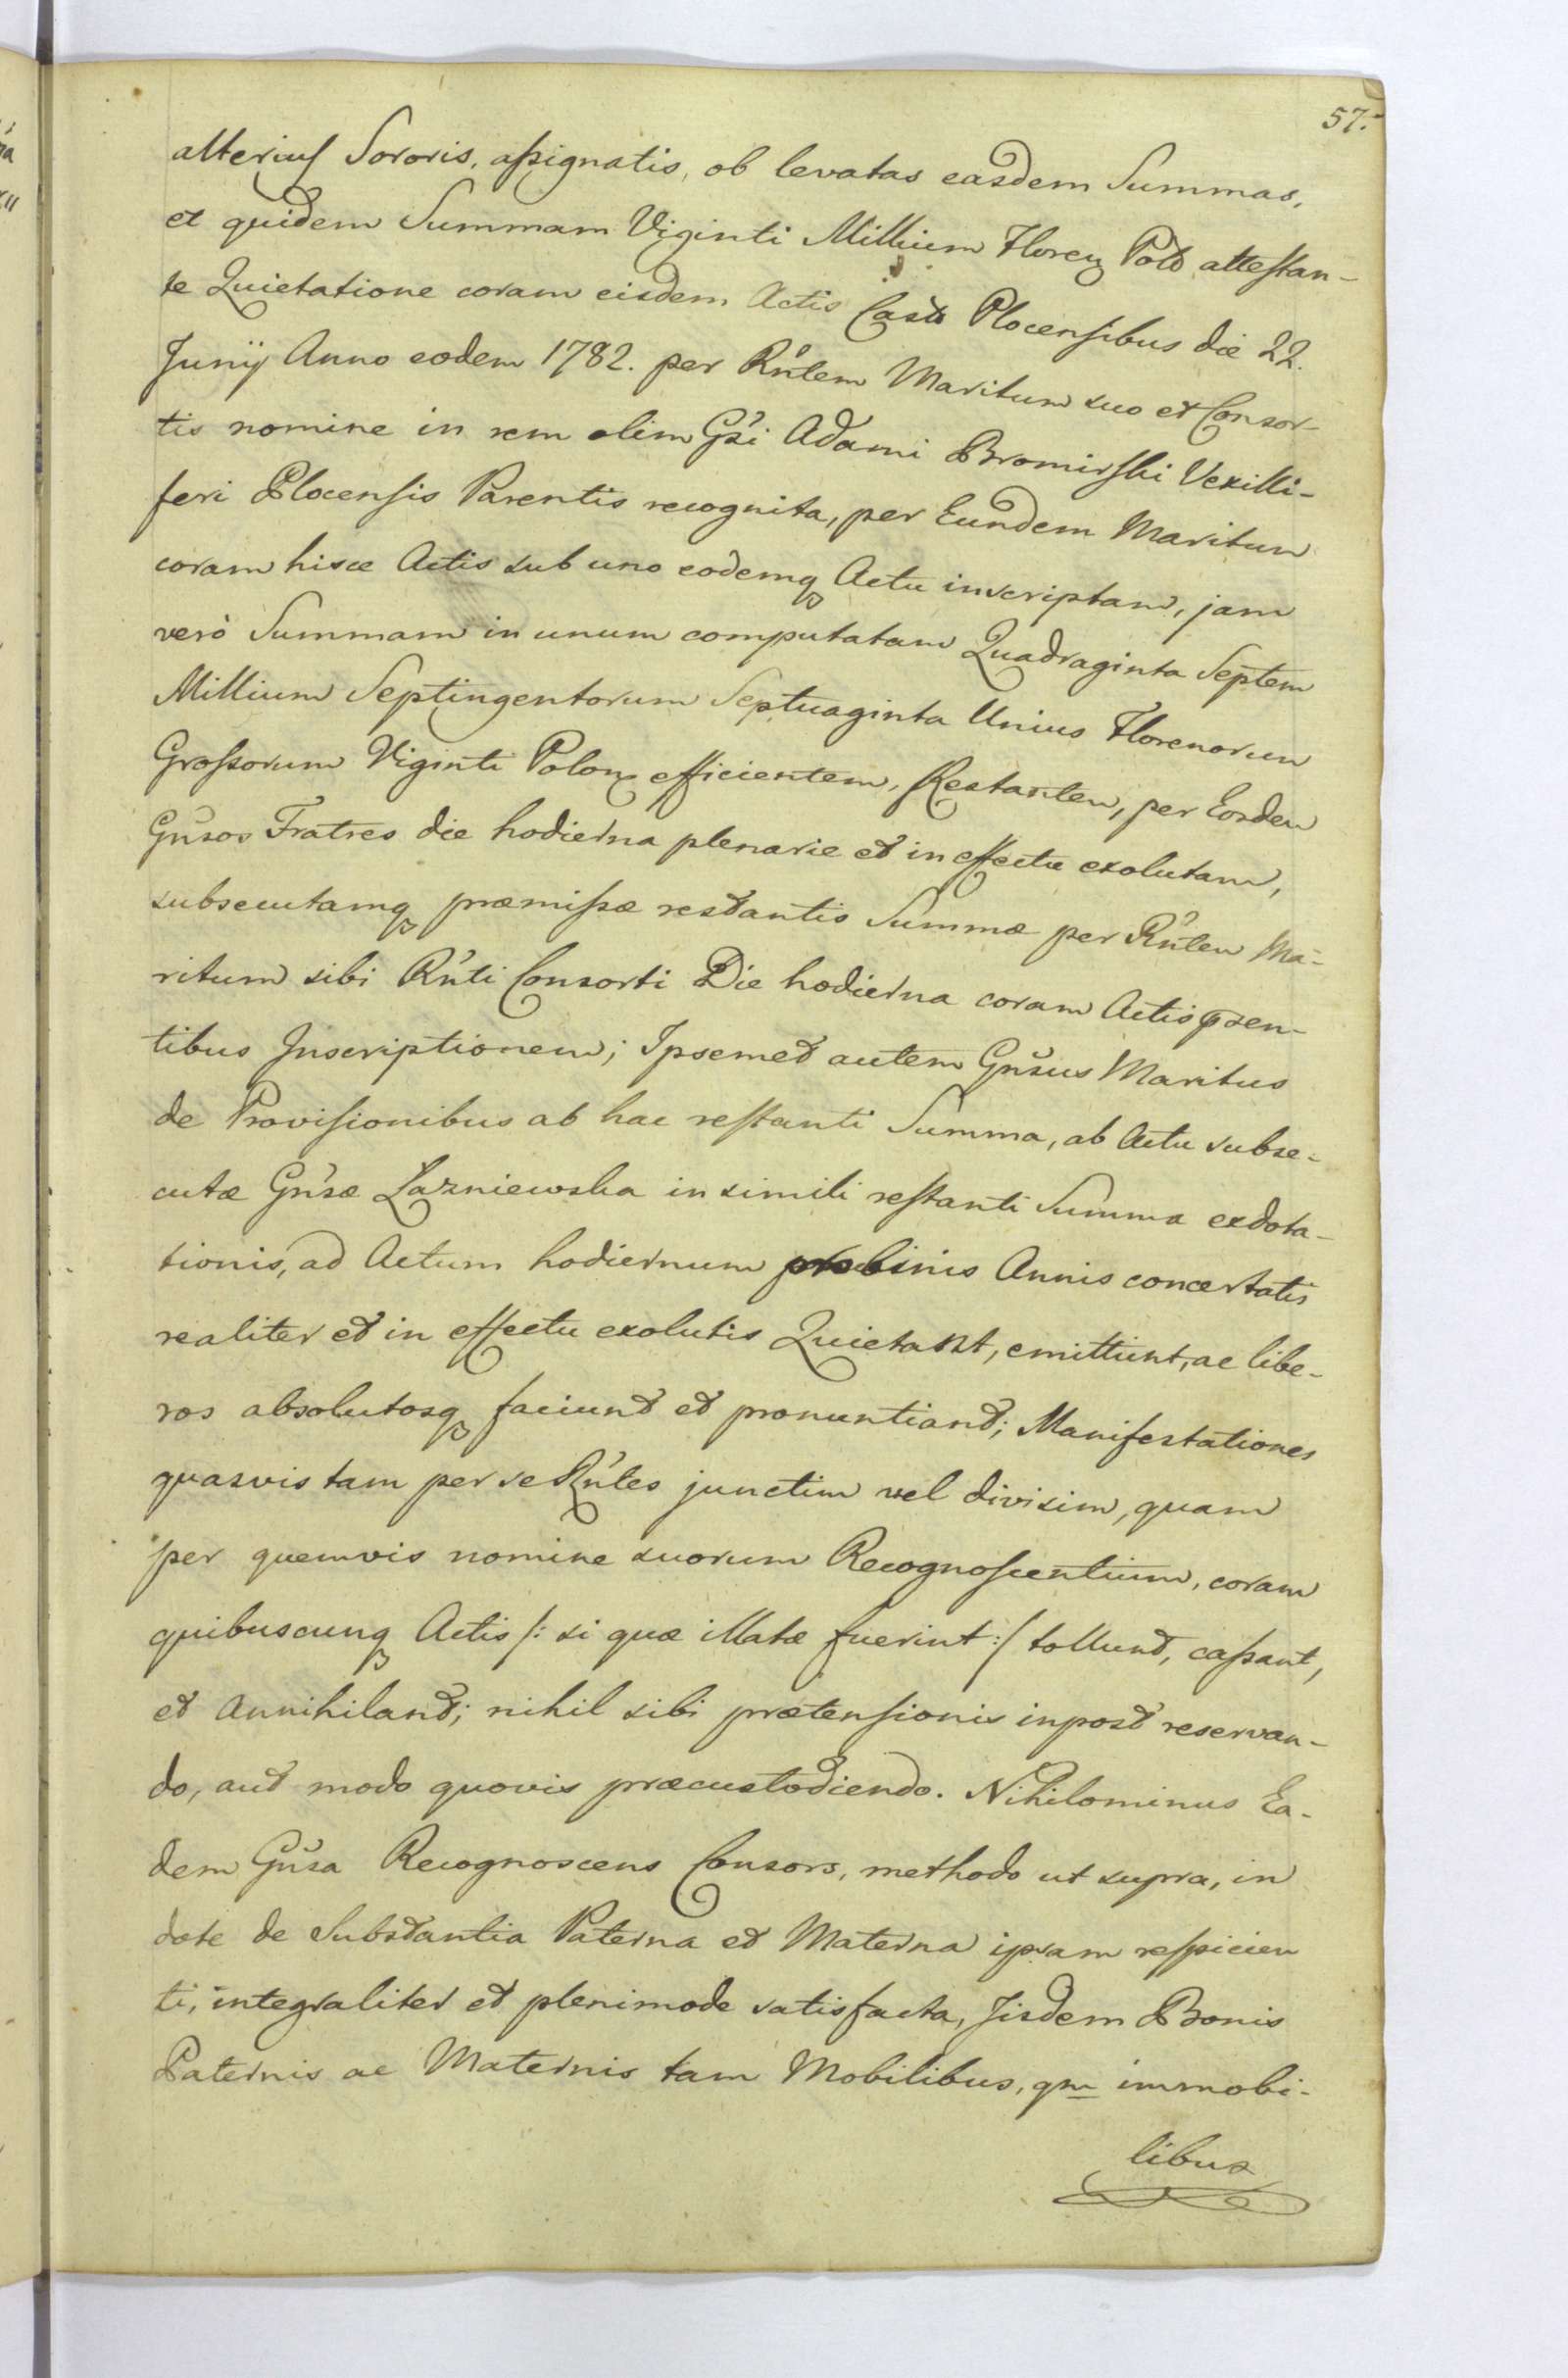 57.
alterius Sororis, assignatis, ob levatas easdem Summas,
et quidem Summam Viginti Millium Floren Pold attestan-
te Quietatione coram eisdem Actis Castr Plocensibus die 22.
Junij Anno eodem 1782. per Rn̄tem Maritum suo et Consor-
tis nomine in rem olim Gs̄i Adami Bromirski Vexilli-
feri Plocensis Parentis recognita, per Eundem Maritum
coram hisce Actis sub uno eodemq Actu inscriptam, jam
verò Summam in unum computatam Quadraginta Septem
Millium Septingentorum Septuaginta Unius Florenorum
Grossorum Viginti Polon efficientem, Restantem, per Eosdem
Gn̄sos Fratres die hodierna plenarie et in effectu exolutam,
subsecutamq præmissæ restantis Summæ per Rn̄tem Ma-
ritum sibi Rn̄ti Consorti Die hodierna coram Actis p̄sen-
tibus Inscriptionem; Ipsemet autem Gn̄sus Maritus
de Provisionibus ab hac restanti Summa, ab Actu subse-
cutæ Gn̄sæ Łazniewska in simili restanti Summa exdota-
tionis, ad Actum hodiernum pro binis Annis concertatis
realiter et in effectu exolutis Quietant, emittunt, ac libe-
ros absolutosq faciunt et pronuntiant; Manifestationes
quasvis tam per se Rn̄tes junctim vel divisim, quam
per quemvis nomine suorum Recognoscentium, coram
quibuscunq Actis /: si quæ illatæ fuerint :/ tollunt, cassant,
et Annihilant; nihil sibi prætensionis inpost reservan-
do, aut modo quovis præcustodiendo. Nihilominus Ea-
dem Gn̄sa Recognoscens Consors, methodo ut supra, in
dote de Substantia Paterna et Materna ipsam respicien
ti, integraliter et plenimode satisfacta, Iisdem Bonis
Paternis ac Maternis tam Mobilibus, qm immobi-
libus